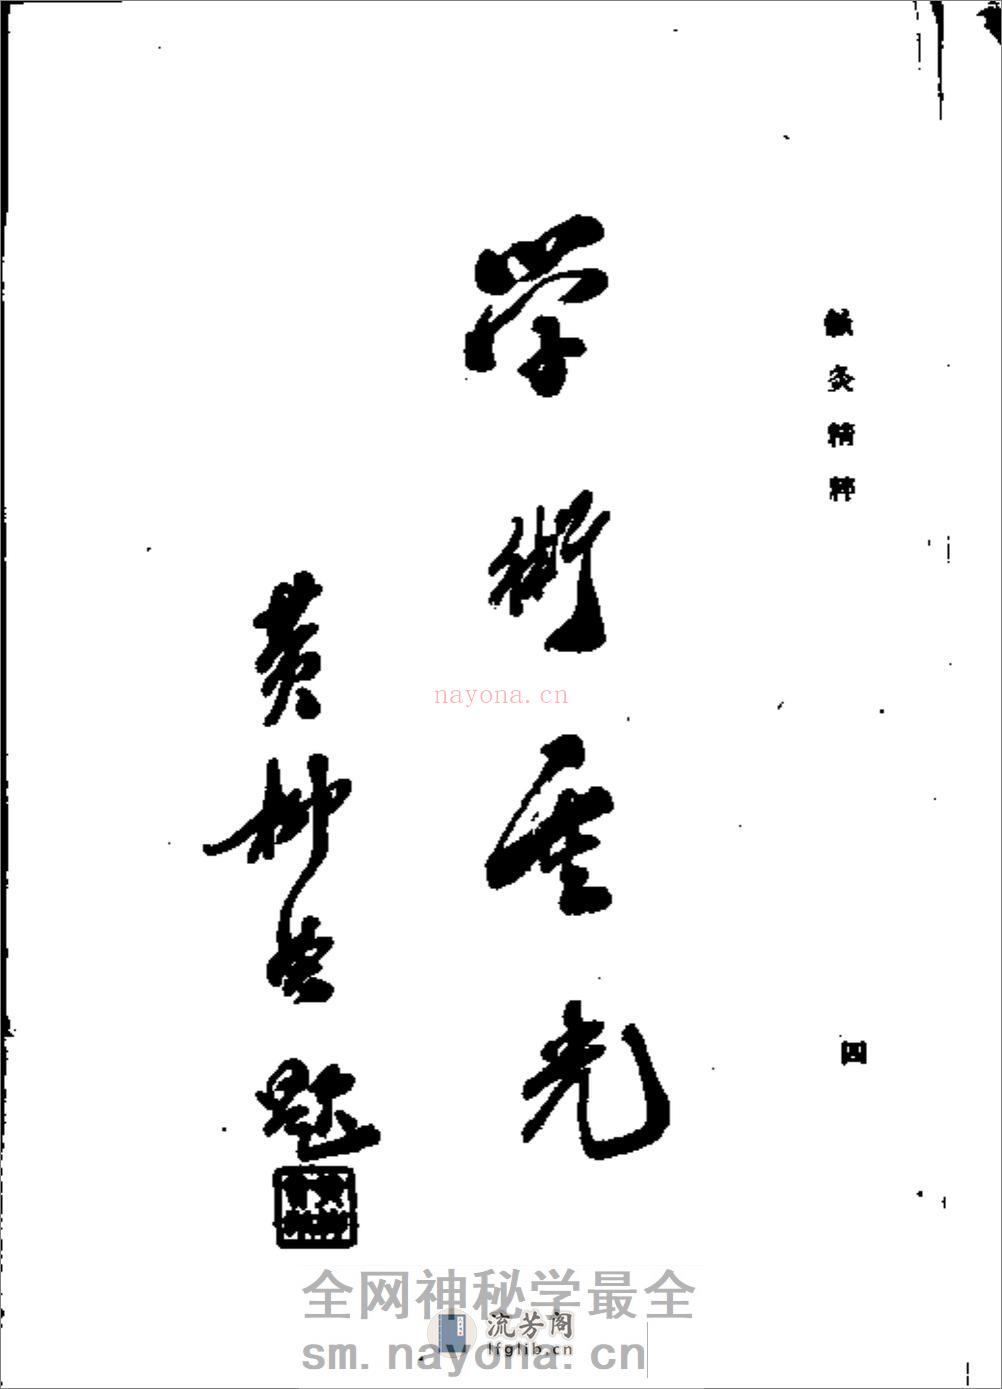 鍼灸精粹
四
学術重光
黄
題
nayona.cn
全网神秘学最全
流芳阁
lfglib.cn
sm.nayona.cn